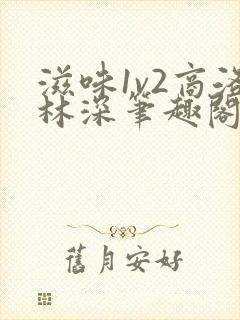 滋味1v2高洛
林深笔趣閣
舊月安好